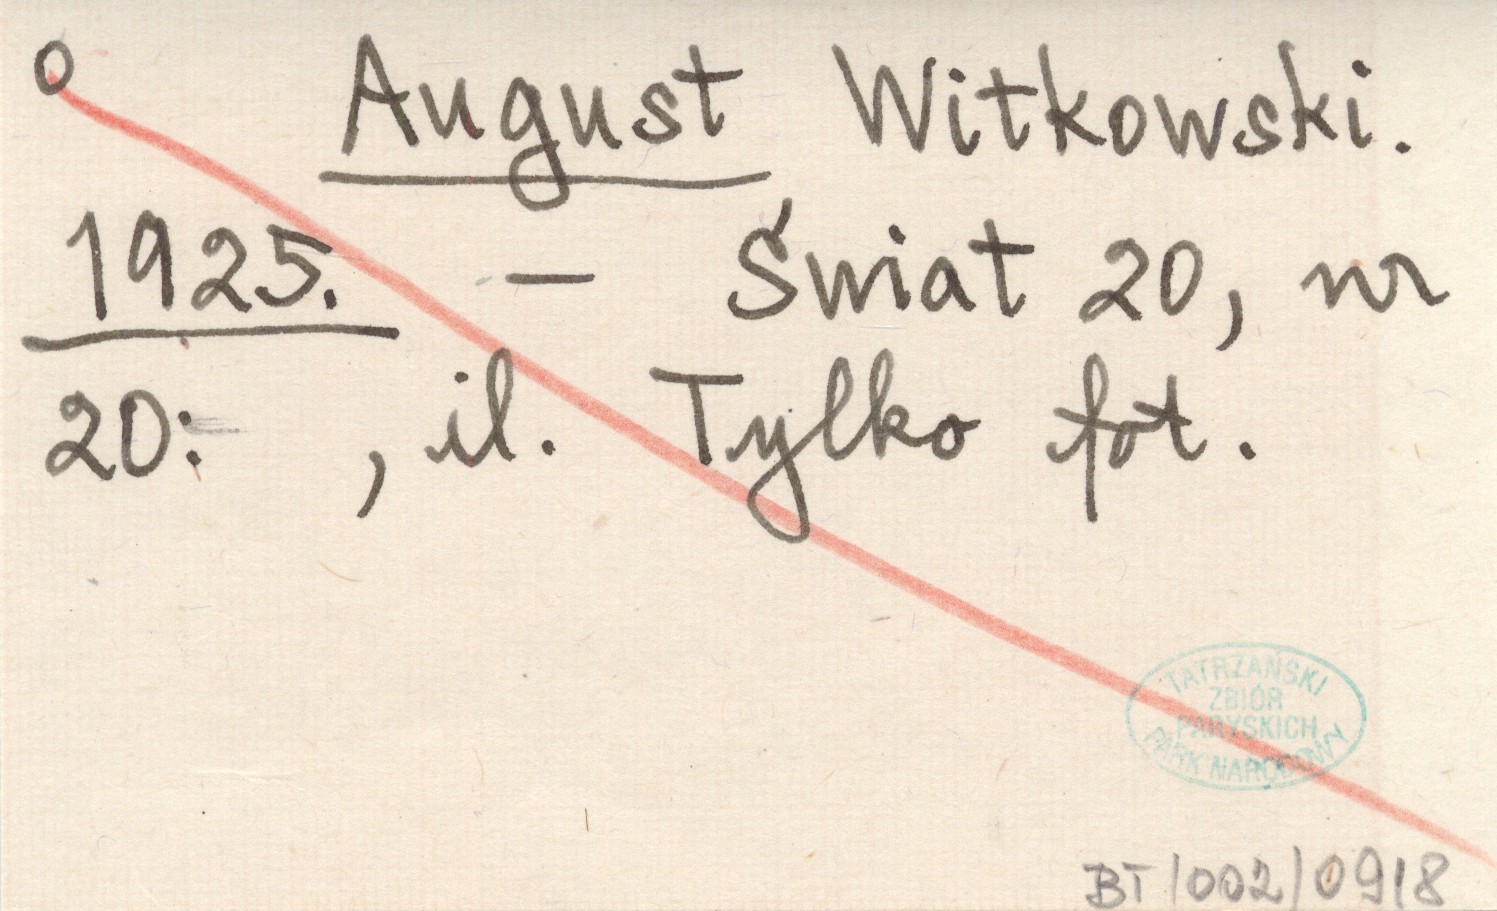 o August Witkowski.
1925. — Świat 20, nr
20: , il. Tylko fot.
TATRZAŃSKI
ZBIÓR
PARYSKICH
PARK NARODOWY
BT/002/0918